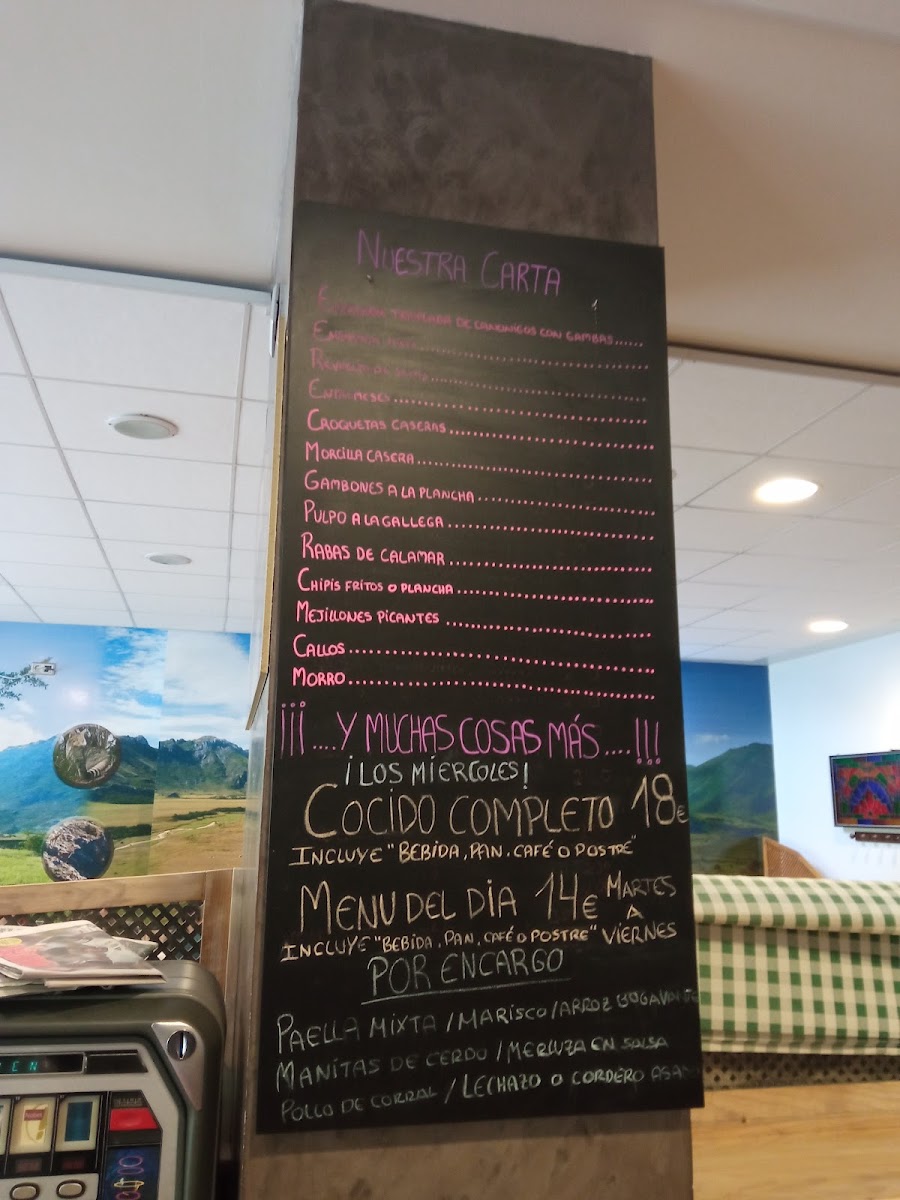 NUESTRA CARTA
ENSALADA TEMPLADA DE CANONIGOS CON GAMBAS......
ENSALADA MIXTA..............................
REVUELTO DE..............................
ENTREMESES..............................
CROQUETAS CASERAS..............................
MORCILLA CASERA..............................
GAMBONES A LA PLANCHA..............................
PULPO A LA GALLEGA..............................
RABAS DE CALAMAR..............................
CHIPIS FRITOS O PLANCHA..............................
MEJILLONES PICANTES..............................
CALLOS..............................
MORRO..............................
¡¡¡....Y MUCHAS COSAS MÁS....!!!
¡LOS MIERCOLES!
COCIDO COMPLETO 18€
INCLUYE "BEBIDA, PAN, CAFÉ O POSTRE"
MENU DEL DIA 14€ MARTES A VIERNES
INCLUYE "BEBIDA, PAN, CAFÉ O POSTRE"
POR ENCARGO
PAELLA MIXTA / MARISCO / ARROZ BOGAVANTE
MANITAS DE CERDO / MERLUZA EN SALSA
POLLO DE CORRAL / LECHAZO O CORDERO ASA